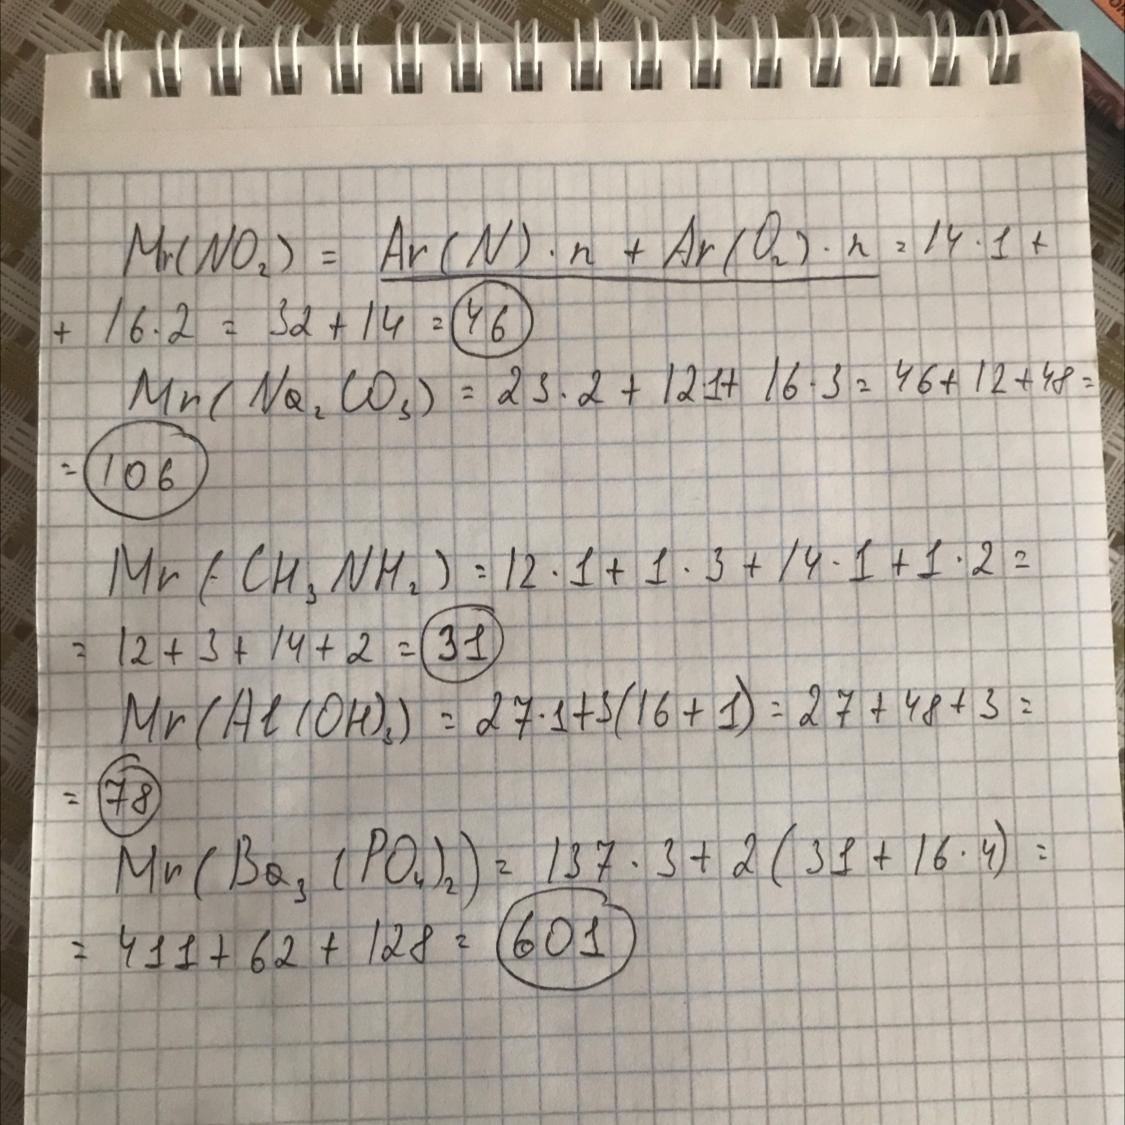 Mr(NO₂) = Ar(N)·n + Ar(O₂)·n = 14·1 +
+ 16·2 = 32+14 = 46
Mr(Na₂CO₃) = 23·2 + 12·1+ 16·3 = 46+12+48=
= 106
Mr(CH₃NH₂) = 12·1 + 1·3 + 14·1 + 1·2 =
= 12+3+14+2 = 31
Mr(Al(OH)₃) = 27·1+3(16+1) = 27+48+3 =
= 78
Mr(Ba₃(PO₄)₂) = 137·3+2(31+16·4) =
= 411+62+128 = 601